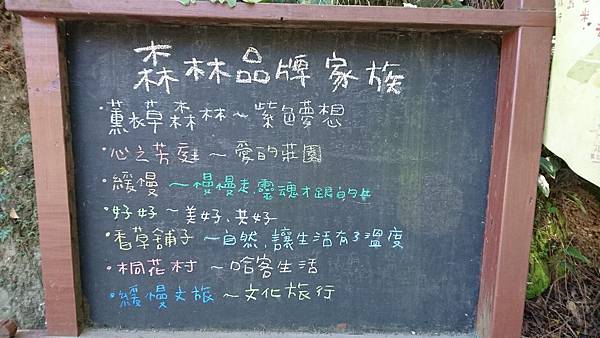 森林品牌家族
·薰衣草森林~紫色夢想
·心之芳庭~愛的莊園
·緩慢~慢慢走,靈魂才跟的上
·好好~美好、共好
·香草舖子~自然,讓生活有了溫度
·桐花村~哈客生活
·緩慢文旅~文化旅行